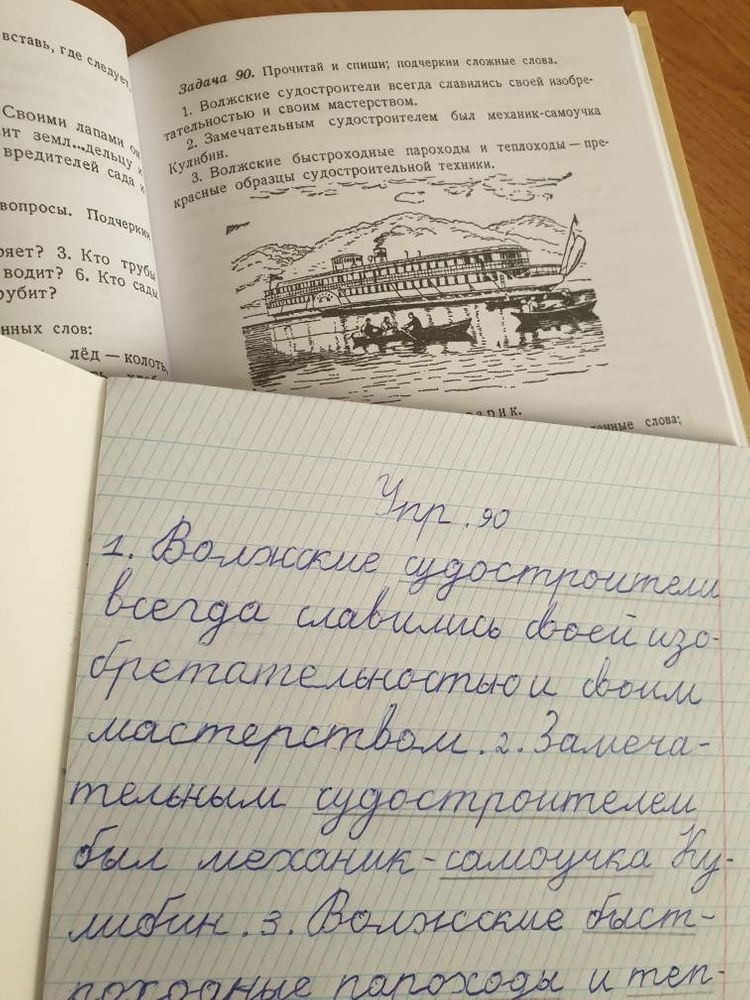 вставь, где следует,
Своими лапами
ит земл...дельцу и
вредителей сада и
вопросы. Подчеркни
ряет? 3. Кто трубы
водит? 6. Кто сады
рубит?
нных слов:
лёд — колоть,
Задача 90. Прочитай и спиши; подчеркни сложные слова.
1. Волжские судостроители всегда славились своей изобре-
тательностью и своим мастерством.
2. Замечательным судостроителем был механик-самоучка
Кулибин.
3. Волжские быстроходные пароходы и теплоходы — пре-
красные образцы судостроительной техники.
слова;
Упр. 90
1. Волжские судостроители
всегда славились своей изо-
бретательностью и своим
мастерством. 2. Замеча-
тельным судостроителем
был механик-самоучка Ку-
либин. 3. Волжские быст-
роходные пароходы и теп-